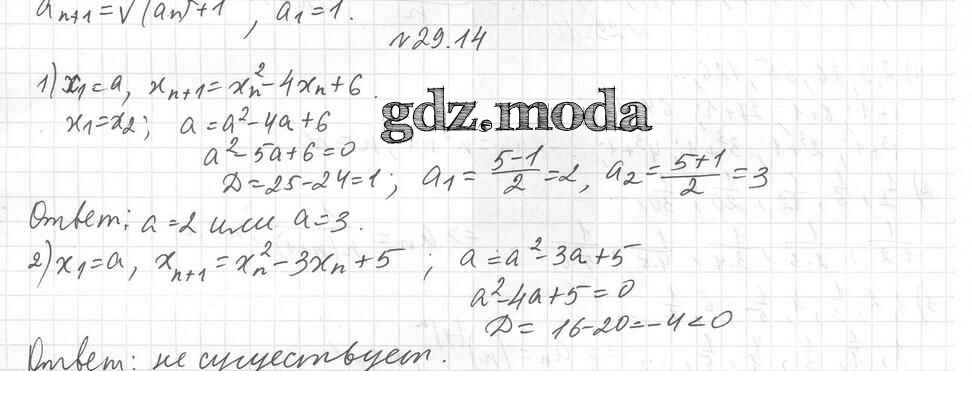 aₙ₊₁ = √(aₙ)² + 1, a₁ = 1.
№ 29.14
1) x₁ = a, xₙ₊₁ = xₙ² - 4xₙ + 6.
gdz.moda
x₁ = x₂; a = a² - 4a + 6
a² - 5a + 6 = 0
D = 25 - 24 = 1; a₁ = (5-1)/2 = 2, a₂ = (5+1)/2 = 3
Ответ: a = 2 или a = 3.
2) x₁ = a, xₙ₊₁ = xₙ² - 3xₙ + 5; a = a² - 3a + 5
a² - 4a + 5 = 0
D = 16 - 20 = -4 < 0
Ответ: не существует.